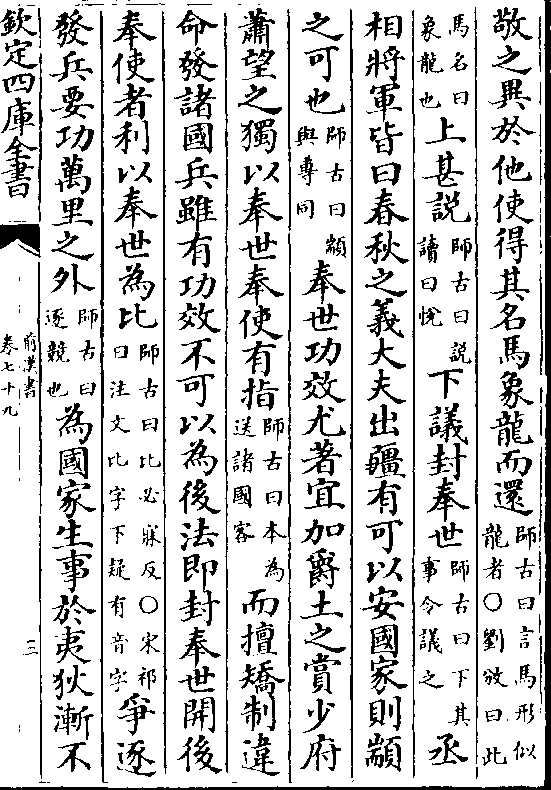 敬之異於他使得其名馬象龍而還師古曰言馬形似龍者○劉攽曰此
馬名曰象龍也上甚說師古曰說讀曰悅下議封奉世師古曰下其事令議之丞
相將軍皆曰春秋之義大夫出疆有可以安國家則顓
之可也師古曰顓與專同奉世功效尤著宜加爵土之賞少府
蕭望之獨以奉世奉使有指師古曰本為送諸國客而擅矯制違
命發諸國兵雖有功效不可以為後法即封奉世開後
奉使者利以奉世為比師古曰比必寐反○宋祁曰注文比字下疑有音字爭逐
發兵要功萬里之外師古曰逐競也為國家生事於夷狄漸不
欽定四庫全書
前漢書
卷七十九
三